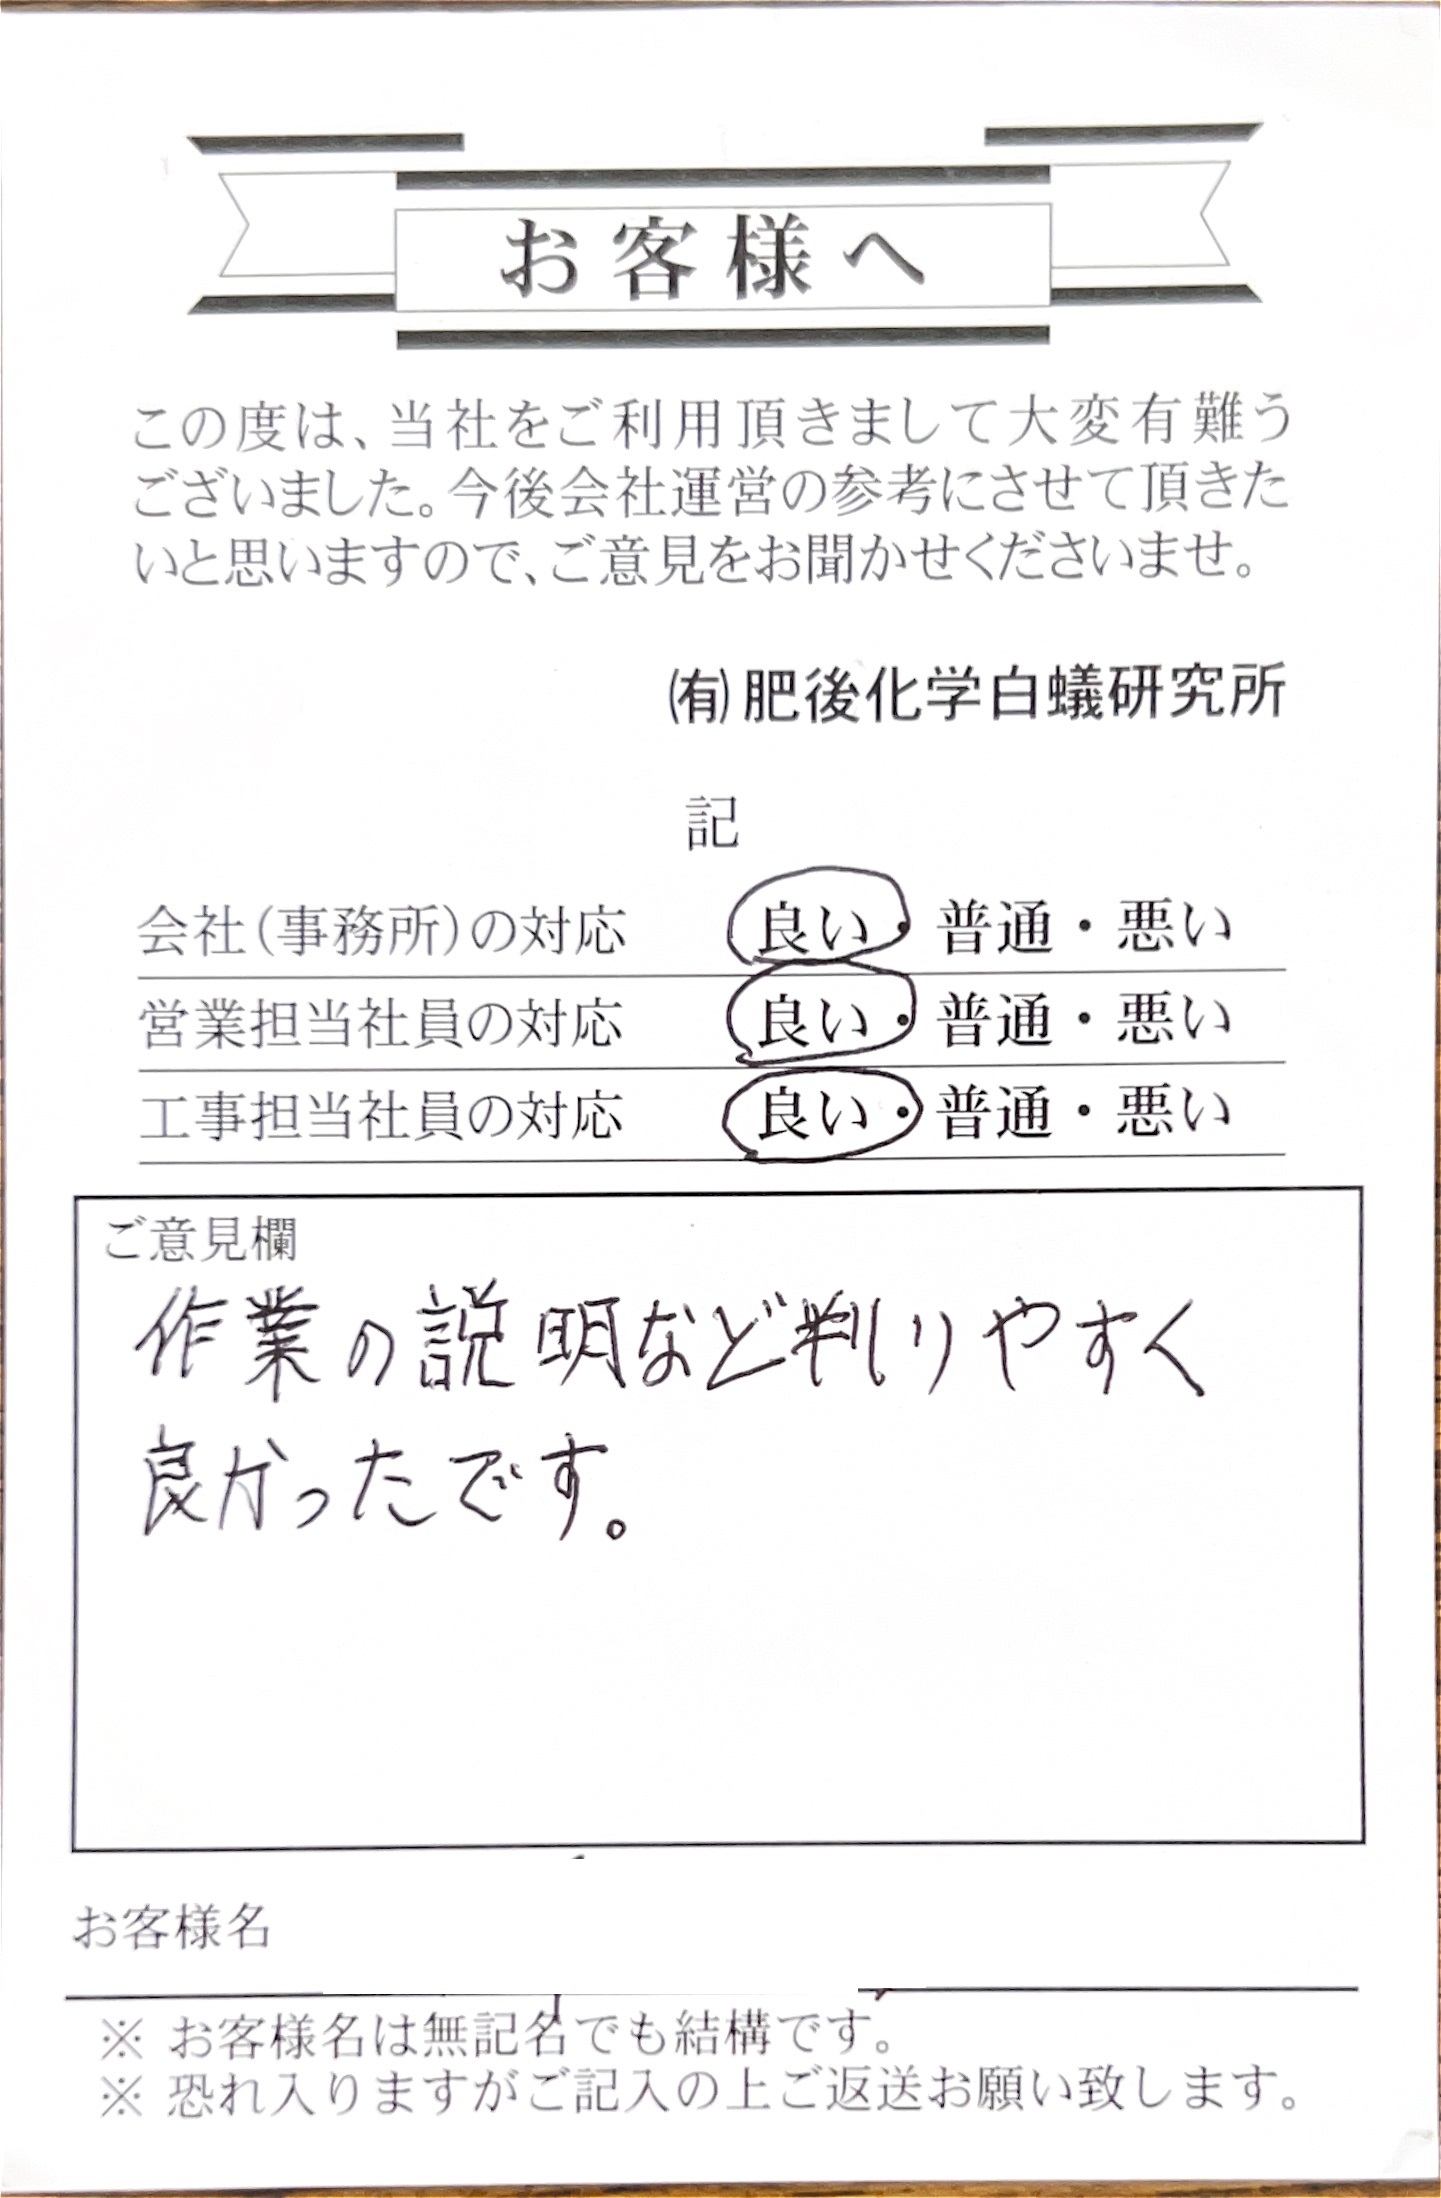 お客様へ
この度は、当社をご利用頂きまして大変有難う
ございました。今後会社運営の参考にさせて頂きた
いと思いますので、ご意見をお聞かせくださいませ。
㈲肥後化学白蟻研究所
記
会社(事務所)の対応 良い・普通・悪い
営業担当社員の対応 良い・普通・悪い
工事担当社員の対応 良い・普通・悪い
ご意見欄
作業の説明など判りやすく
良かったです。
お客様名
※ お客様名は無記名でも結構です。
※ 恐れ入りますがご記入の上ご返送お願い致します。